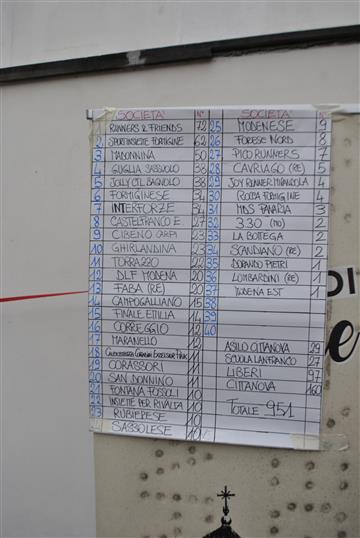 SOCIETA' N°
1 RUNNERS & FRIENDS 72
2 SPORTINSIEME FORMIGINE 62
3 MADONNINA 50
4 GUGLIA SASSUOLO 38
5 JOLLY CTL BAGNOLO 38
6 FORMIGINESE 34
7 INTERFORZE 34
8 CASTELFRANCO E. 27
9 CIBENO CARPI
10 GHIRLANDINA 23
11 TORRAZZO 22
12 DLF MODENA 20
13 FABA (RE) 20
14 CAMPOGALLIANO 15
15 FINALE EMILIA 14
16 CORREGGIO 12
17 MARANELLO 12
18 11
19 CORASSORI 11
20 SAN DONNINO 11
21 FONTANA FOSSOLI 11
22 INSIEME PER RIVALTA 10
23 RUBIERESE 10
SASSOLESE 10
SOCIETA' N°
25 MODENESE 9
26 FORESE NORD 8
27 PICO RUNNERS 7
28 CAVRIAGO (RE) 5
29 JOY RUNNER MIRANDOLA 4
30 PODISTICA FORMIGINE 4
31 MDS PANARIA 3
32 3.30 (MO) 2
33 LA BOTTEGA 2
34 SCANDIANO (RE) 2
35 DORANDO PIETRI 1
36 LOMBARDINI (RE) 1
37 MODENA EST 1
38
39
40
ASILO CITTANOVA 29
SCUOLA LANFRANCO 27
LIBERI 97
CITTANOVA 160
TOTALE 951
DI
e